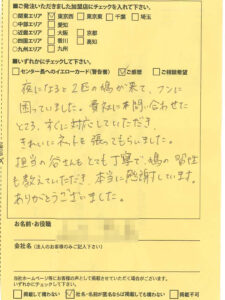 ■ご発注いただきました加盟店にチェックを入れて下さい。
○関東エリア ☑東京西 □東京東 □千葉 □埼玉
○中部エリア □愛知
○近畿エリア □大阪 □京都
○四国エリア □香川 □高知
○九州エリア □九州
■いずれかにチェックして下さい。
□センター長へのイエローカード(警告書) ☑ご感想 □ご相談希望
夜になると2匹の鳩が来て、フンに
困っていました。貴社に問い合わせた
ところ、すぐに対応していただき、
きれいにネットを張ってもらいました。
担当の谷さんもとても丁寧で、鳩の習性
も教えていただき、本当に感謝しています。
ありがとうございました。
お名前・役職
会社名(法人のお客様のみご記入下さい)
当社ホームページ等にお客様の声として掲載させていただく場合がございます。
いずれかにチェックして下さい。
□掲載して構わない ☑社名・名前が匿名ならば掲載しても構わない □掲載不可